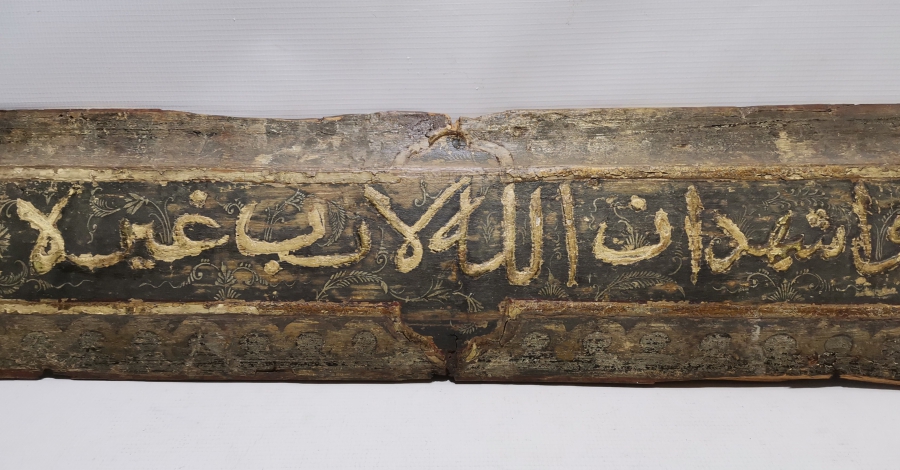 اشهد ان الله لا رب غيره